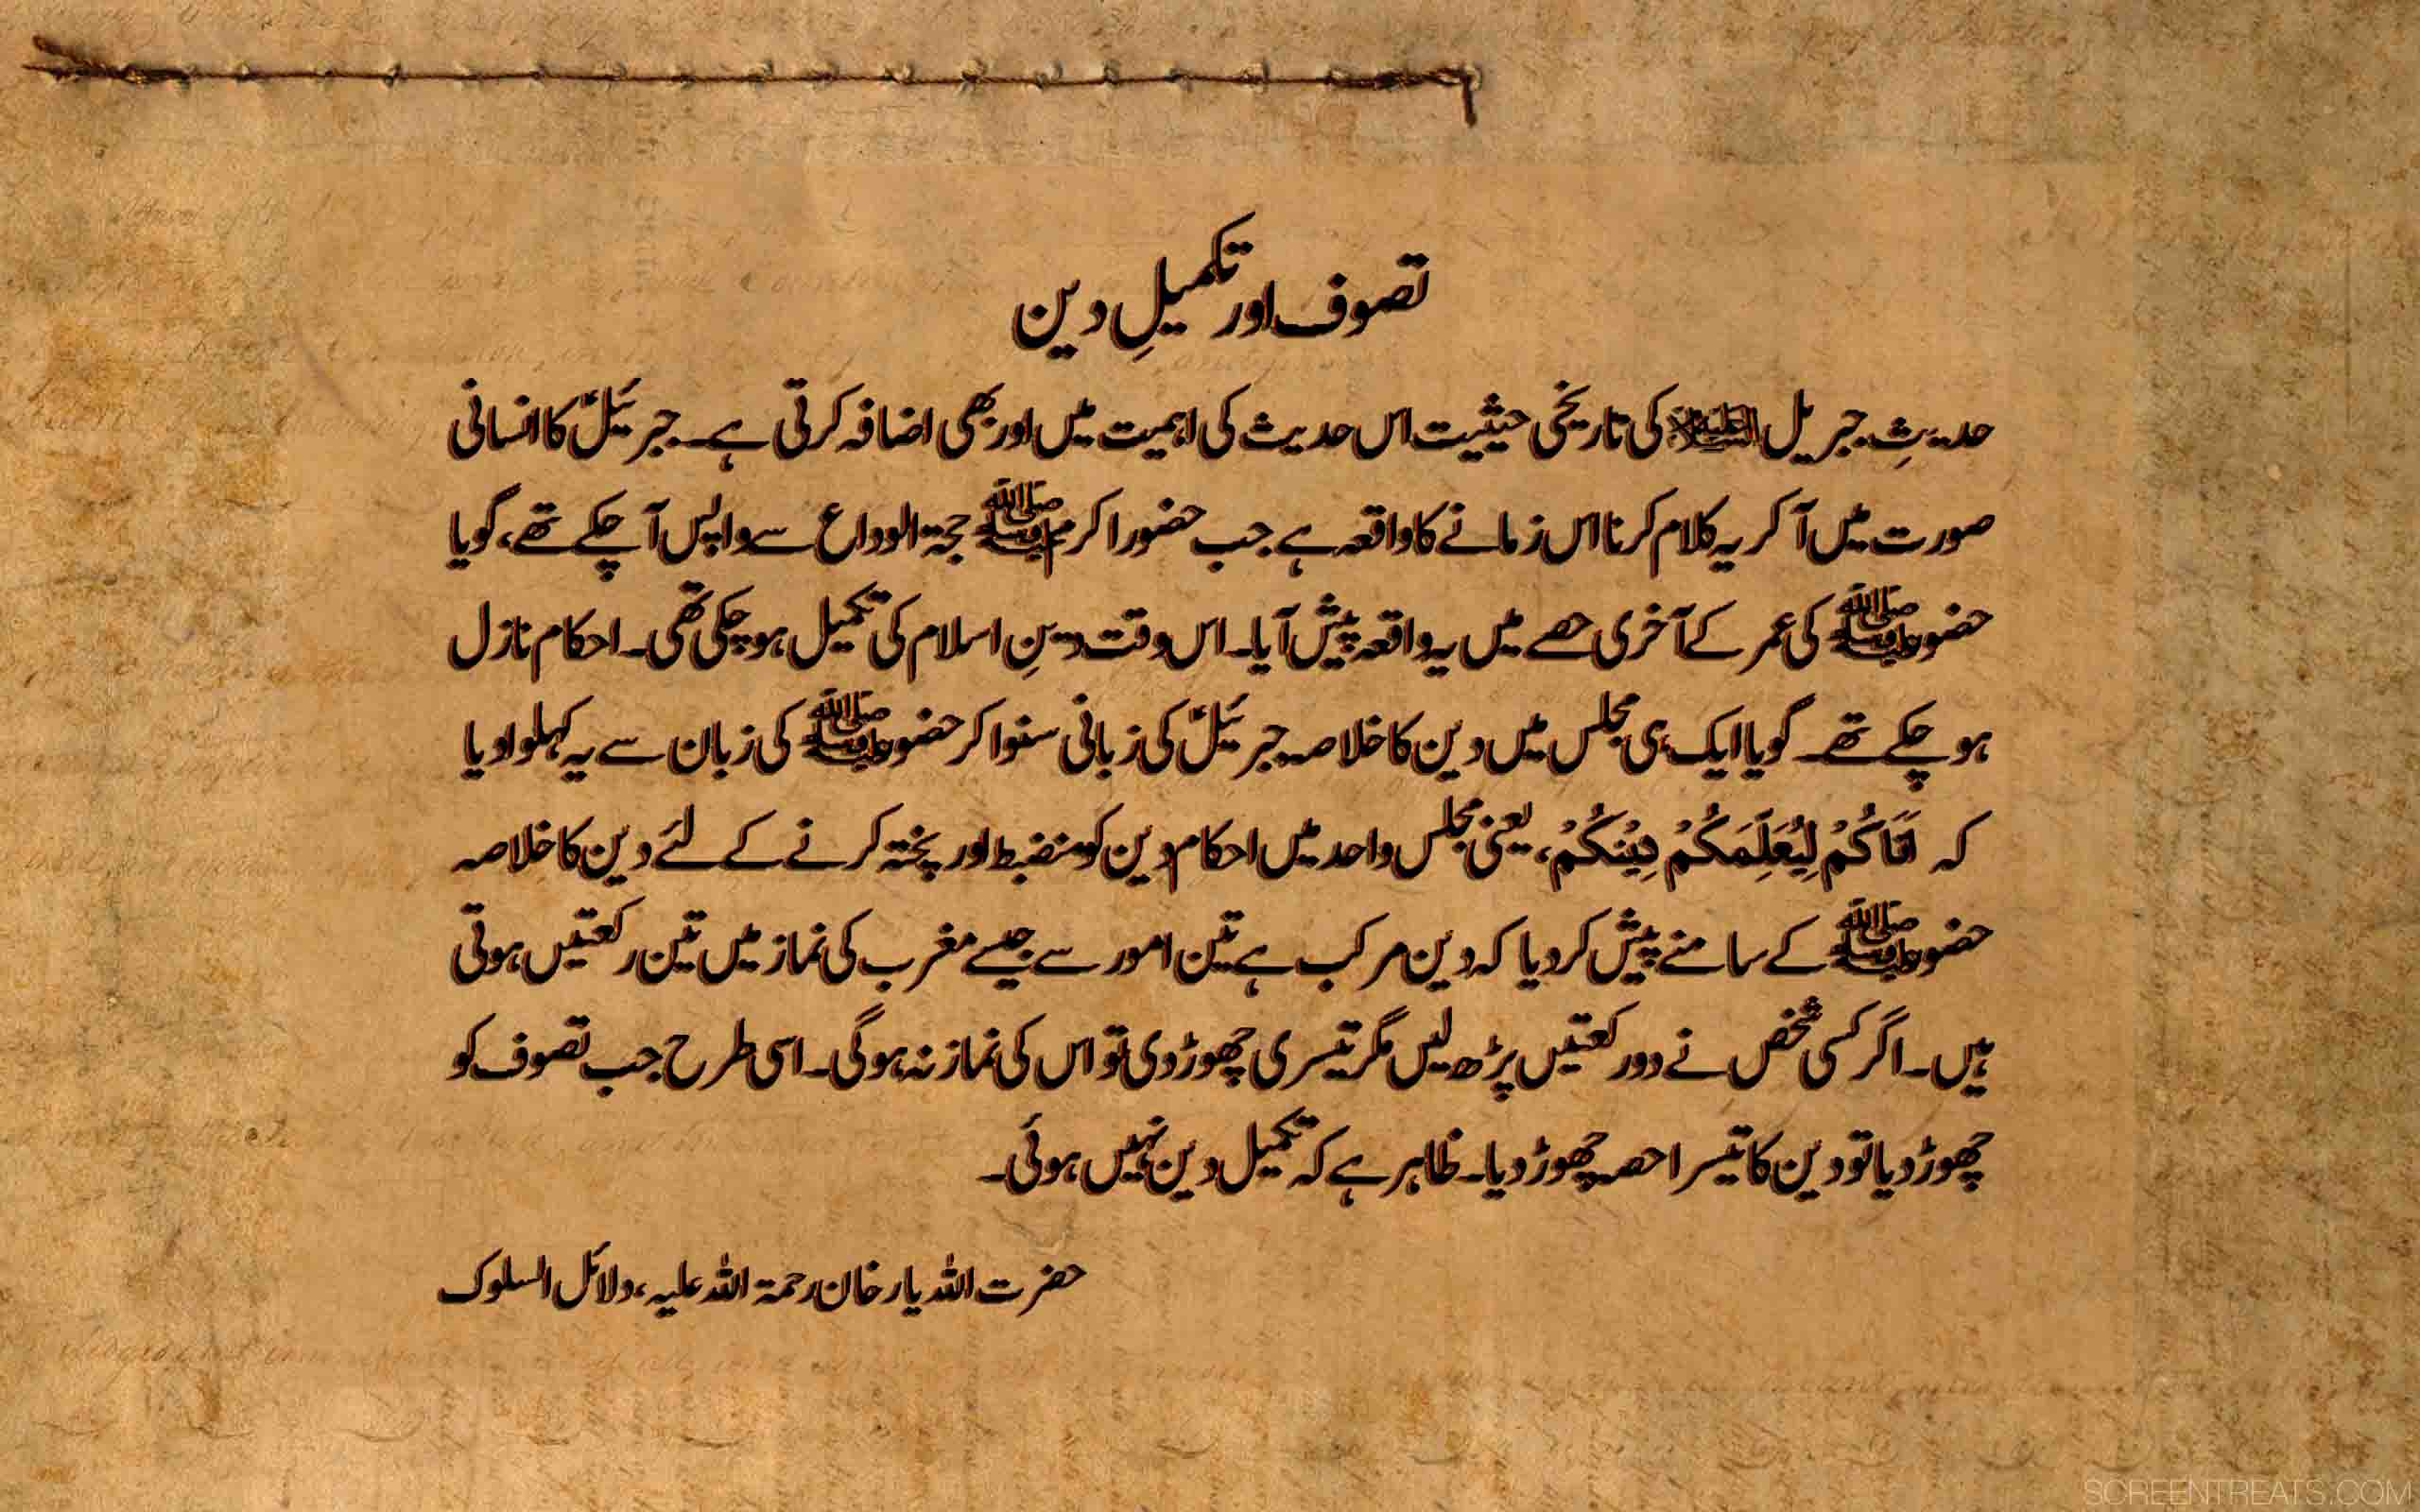 تصوف اور تکمیلِ دین
حدیثِ جبریل علیہ السلام کی تاریخی حیثیت اس حدیث کی اہمیت میں اور بھی اضافہ کرتی ہے۔ جبرئیلؑ کا انسانی
صورت میں آ کر یہ کلام کرنا اس زمانے کا واقعہ ہے جب حضور اکرم ﷺ حجۃ الوداع سے واپس آ چکے تھے، گویا
حضور ﷺ کی عمر کے آخری حصے میں یہ واقعہ پیش آیا۔ اس وقت دینِ اسلام کی تکمیل ہو چکی تھی۔ احکام نازل
ہو چکے تھے۔ گویا ایک ہی مجلس میں دین کا خلاصہ جبرئیلؑ کی زبانی سنوا کر حضور ﷺ کی زبان سے یہ کہلوا دیا
کہ اَتَاکُمْ لِیُعَلِّمَکُمْ دِیْنَکُمْ، یعنی مجلس واحد میں احکام دین کو منضبط اور پختہ کرنے کے لئے دین کا خلاصہ
حضور ﷺ کے سامنے پیش کر دیا کہ دین مرکب ہے تین امور سے جیسے مغرب کی نماز میں تین رکعتیں ہوتی
ہیں۔ اگر کسی شخص نے دو رکعتیں پڑھ لیں مگر تیسری چھوڑ دی تو اس کی نماز نہ ہوگی۔ اسی طرح جب تصوف کو
چھوڑ دیا تو دین کا تیسرا حصہ چھوڑ دیا۔ ظاہر ہے کہ تکمیل دین نہیں ہوئی۔
حضرت اللہ یار خان رحمۃ اللہ علیہ، دلائل السلوک
SCREENTREATS.COM